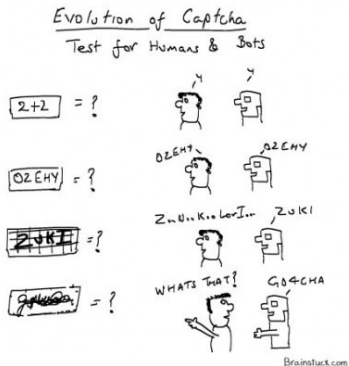 Evolution of Captcha
Test for Humans & Bots
2+2 = ? 4 4
OZEHY = ? OZEHY OZEHY
ZUKI = ? Z..N..K..LorI.. ZUKI
= ? WHATS THAT? GO4CHA
Brainstuck.com